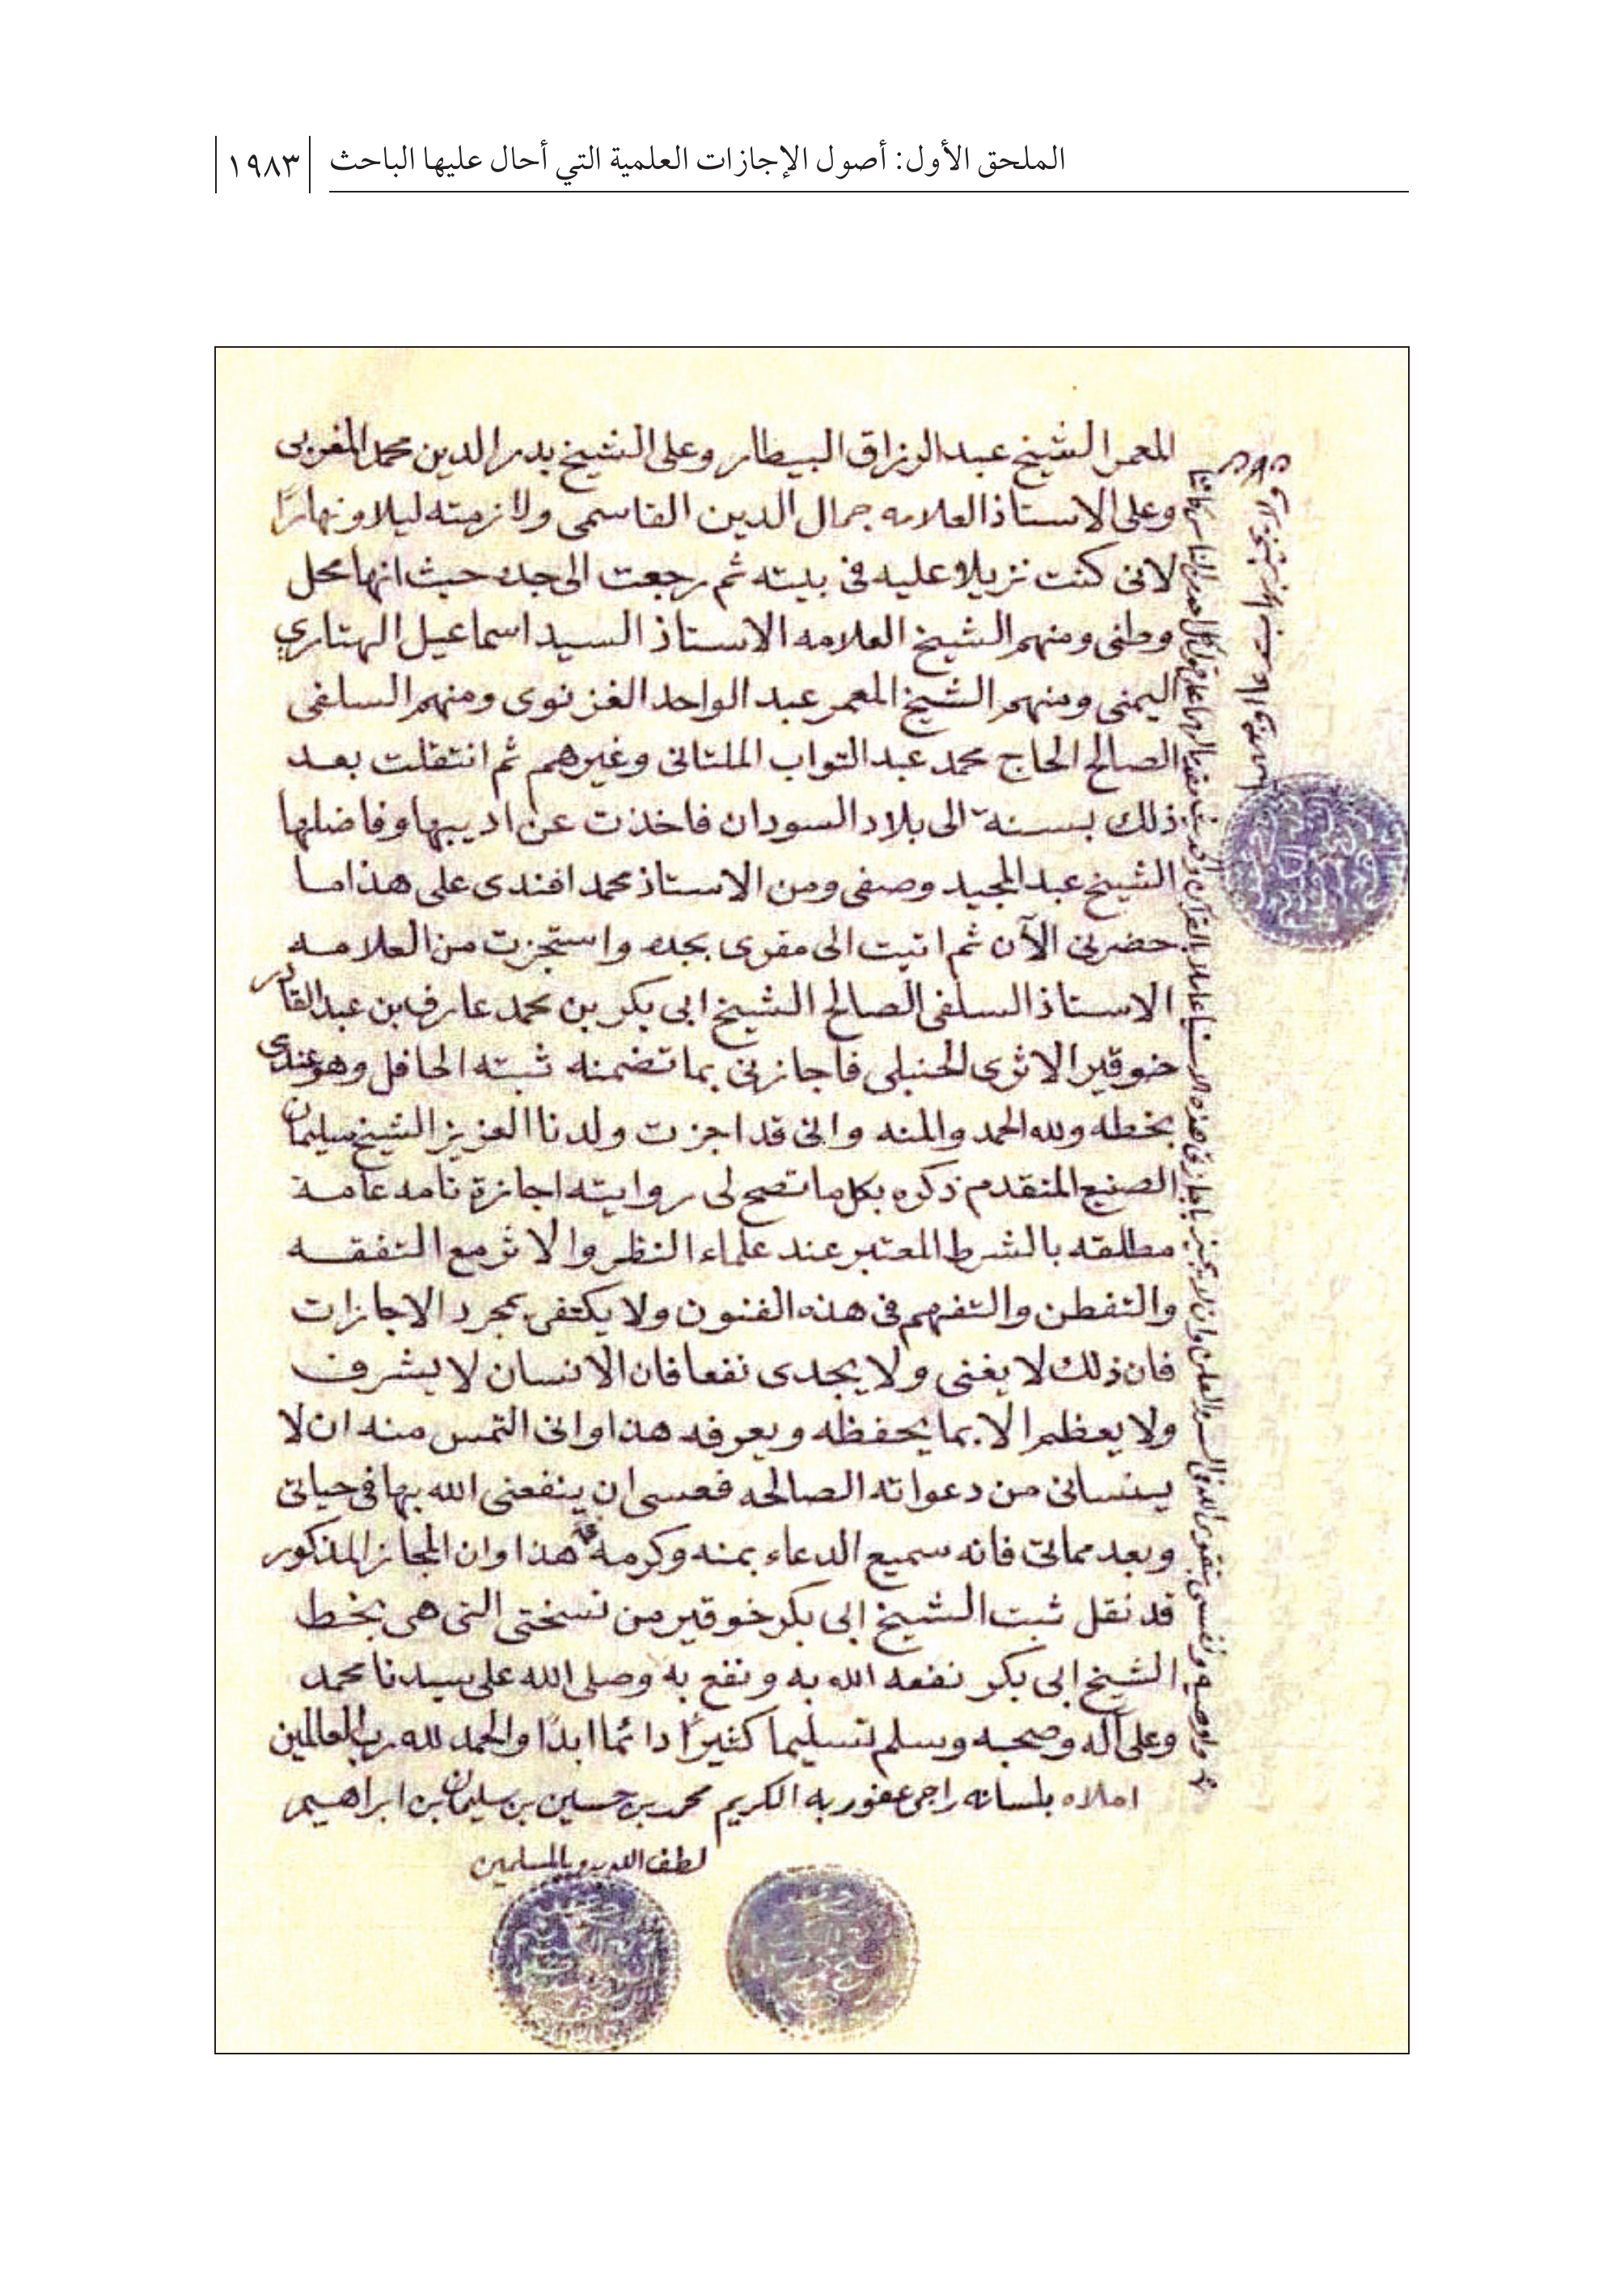 الملحق الأول: أصول الإجازات العلمية التي أحال عليها الباحث
١٩٨٣
المعمر الشيخ عبد الرزاق البيطار وعلى الشيخ بدر الدين محمد المغربي
وعلى الاستاذ العلامه جمال الدين القاسمى ولازمته ليلا ونهارًا
لانى كنت نزيلا عليه فى بيته ثم رجعت الى جده حيث انها محل
وطنى ومنهم الشيخ العلامه الاستاذ السيد اسماعيل الهتاري
اليمنى ومنهم الشيخ المعمر عبد الواحد الغزنوى ومنهم السلفى
الصالح الحاج محمد عبد التواب الملتانى وغيرهم ثم انتقلت بعد
ذلك بسنه الى بلاد السودان فاخذت عن اديبها وفاضلها
الشيخ عبد المجيد وصفى ومن الاستاذ محمد افندى على هذا ما
حضرنى الآن ثم اتيت الى مقرى بجده واستجزت من العلامه
الاستاذ السلفى الصالح الشيخ ابى بكر بن محمد عارف بن عبد القادر
خوقير الاثرى الحنبلى فاجازنى بما تضمنه ثبته الحافل وهو عندى
بخطه ولله الحمد والمنه وانى قد اجزت ولدنا العزيز الشيخ سليمان
الصنيع المتقدم ذكره بكل ما تصح لى روايته اجازة تامه عامة
مطلقه بالشرط المعتبر عند علماء النظر والاثر مع التفقه
والتفطن والتفهم فى هذه الفنون ولا يكتفى بمجرد الاجازات
فان ذلك لا يغنى ولا يجدى نفعا فان الانسان لا يشرف
ولا يعظم الا بما يحفظه ويعرفه هذا وانى التمس منه ان لا
ينسانى من دعواته الصالحه فعسى ان ينفعنى الله بها فى حياتى
وبعد مماتى فانه سميع الدعاء بمنه وكرمه هذا وان المجاز المذكور
قد نقل ثبت الشيخ ابى بكر خوقير من نسختى التى هى بخط
الشيخ ابى بكر نفعه الله به ونفع به وصلى الله على سيدنا محمد
وعلى آله وصحبه وسلم تسليما كثيرًا دائما ابدًا والحمد لله رب العالمين
املاه بلسانه راجى عفو ربه الكريم محمد بن حسين بن سليمان بن ابراهيم
لطف الله به وبالمسلمين